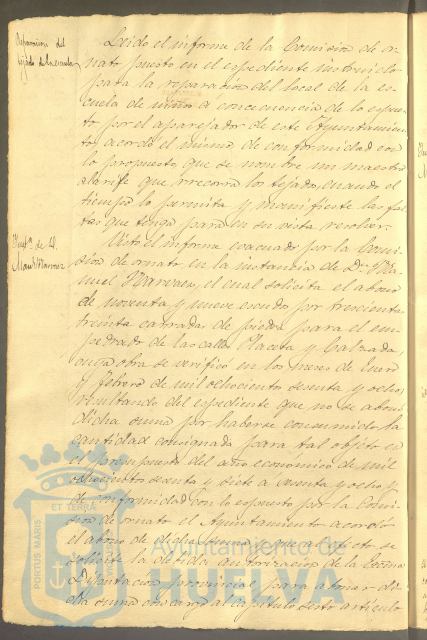 Reparacion del
tejado de la escuela
Leido el informe de la Comision de or-
nato puesto en el espediente instruido
para la reparacion del local de la es-
cuela de niños a concecuencia de lo espues-
to por el aparejador de este Ayuntamien-
to, acordó el mismo de conformidad con
lo propuesto, que se nombre un maestro
alarife que recorra los tejados, cuando el
tiempo lo permita y manifieste las fal-
tas que tenga para en su vista resolver.
de D.
Manl. Narvaez
Visto el informe evacuado por la Comi-
sion de ornato en la instancia de Dn. Ma-
nuel Narvaez, el cual solicita el abono
de noventa y nueve escudos por trescientas
treinta carradas de piedra para el em-
pedrado de las calles Placeta y Calzada,
cuya obra se verificó en los meses de Enero
y febrero de mil ochocientos sesenta y ocho,
resultando del espediente que no se abonó
dicha suma por haberse consumido la
cantidad consignada para tal objeto en
el presupuesto del año económico de mil
ochocientos sesenta y siete a sesenta y ocho y
de conformidad con lo espuesto por la Comi-
sion de ornato el Ayuntamiento acordó
el abono de dicha suma y que al efecto se
solicite la debida autorizacion de la Excma.
Diputacion provincial para abonar di-
cha suma con cargo al capítulo sesto artículo
PORTUS MARIS ET TERRÆ
Ayuntamiento de
HUELVA